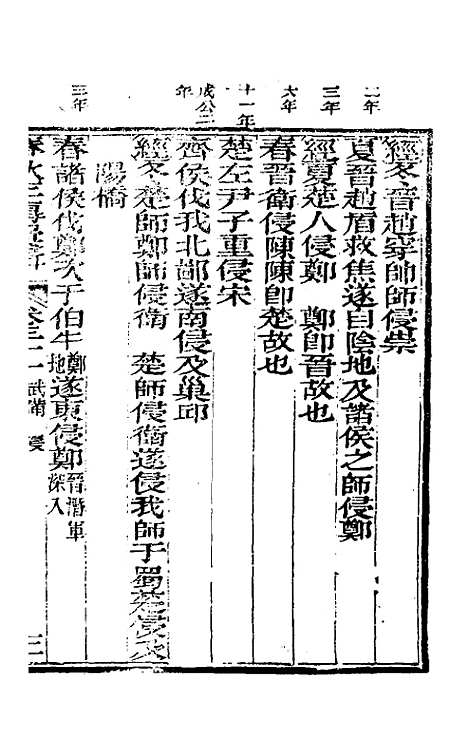 經冬晉趙穿帥師侵崇
二年
夏晉趙盾救焦遂自陰地及諸侯之師侵鄭
三年
經夏楚人侵鄭 鄭卽晉故也
六年
春晉衛侵陳陳卽楚故也
十一年
楚左尹子重侵宋
成公二年
齊侯伐我北鄙遂南侵及巢邱
經冬楚師鄭師侵衛 楚師侵衛遂侵我師于蜀楚侵及
陽橋
三年
春諸侯伐鄭次于伯牛鄭地遂東侵鄭晉潛軍深入
卷三十一 武備 侵
三